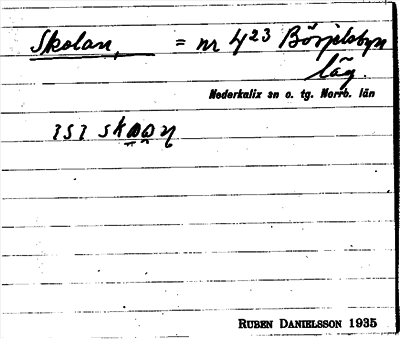 Skolan, = nr 423 Börjelsbyn
läg.
Nederkalix sn o. tg. Norrb. län
RUBEN DANIELSSON 1935